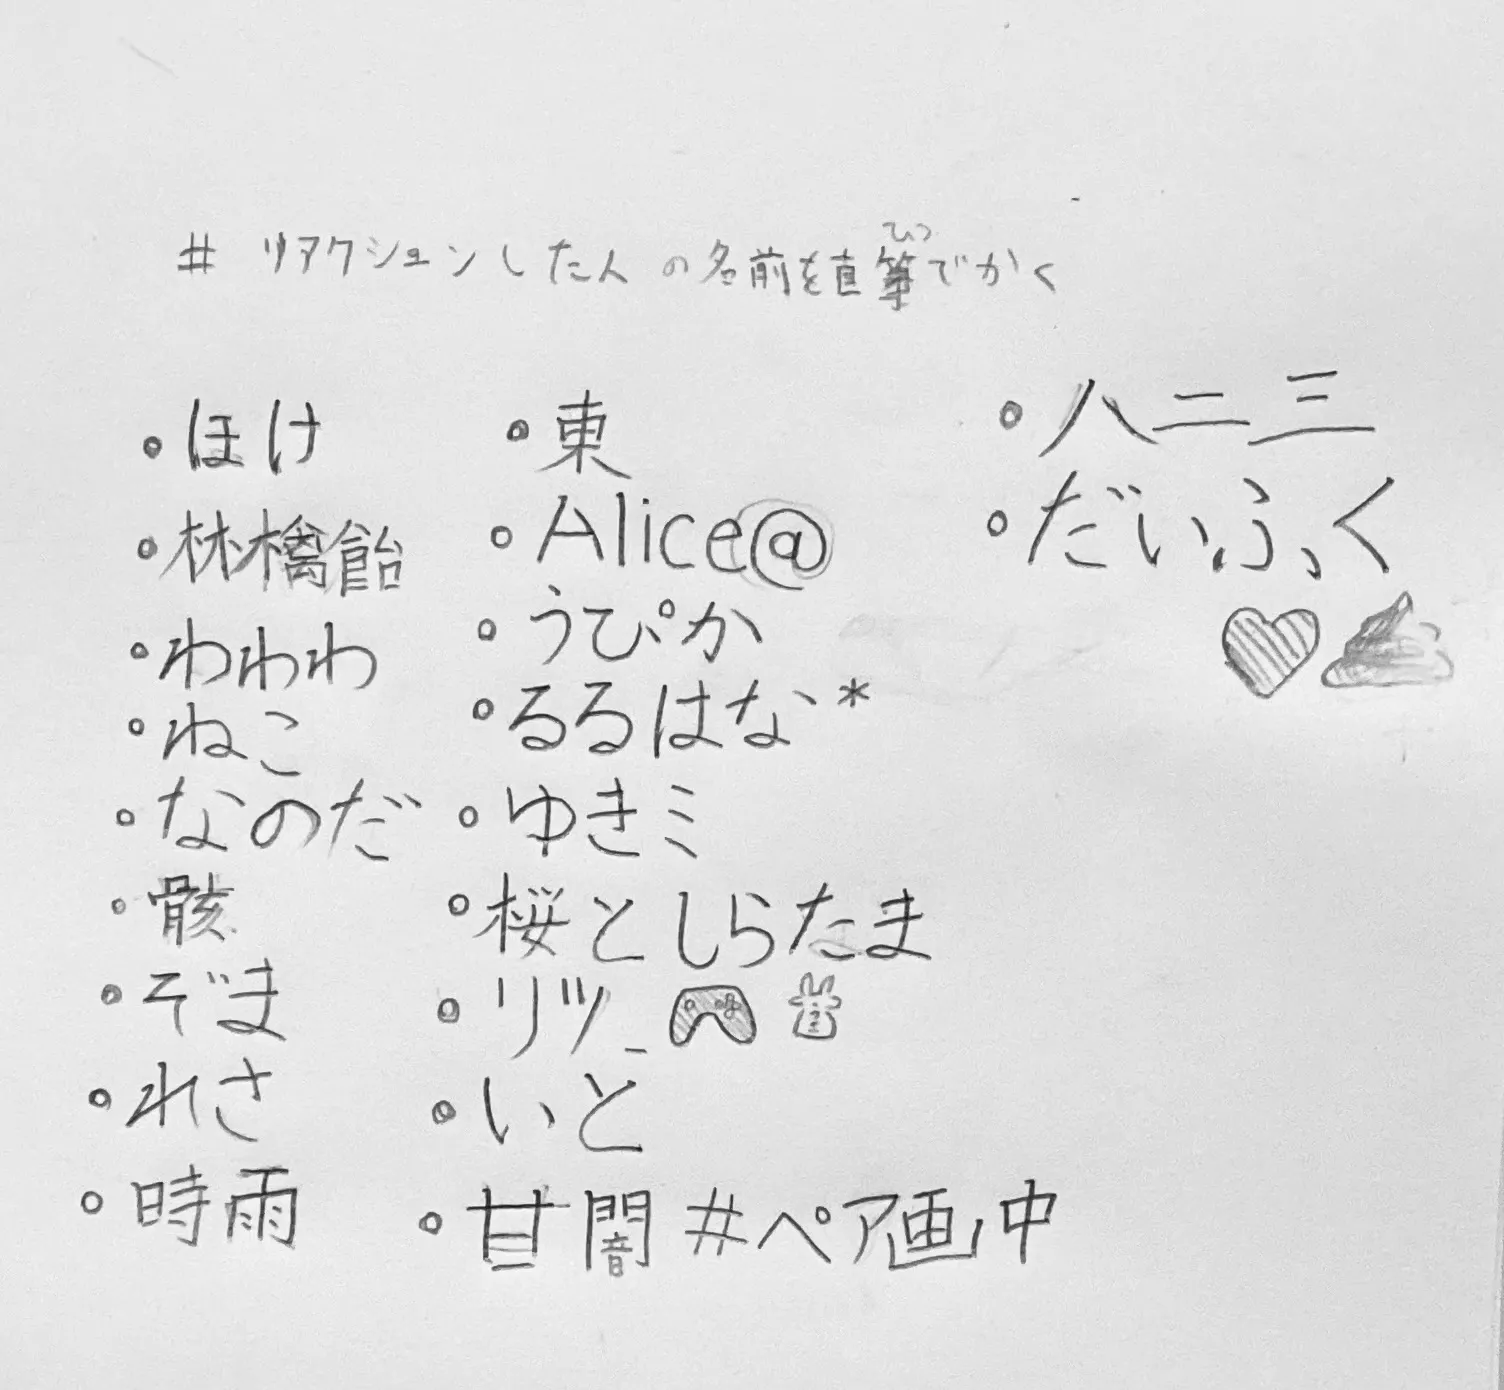 # リアクションした人の名前を直筆でかく
ひつ
・ほけ
・林檎飴
・わわわ
・ねこ
・なのだ
・骸
・ぞま
・れさ
・時雨
・東
・Alice@
・うぴか
・るるはな*
・ゆきミ
・桜としらたま
・リツ_🎮🐰
・いと
・甘闇#ペア画中
・ハニ三
・だいふく
❤💩